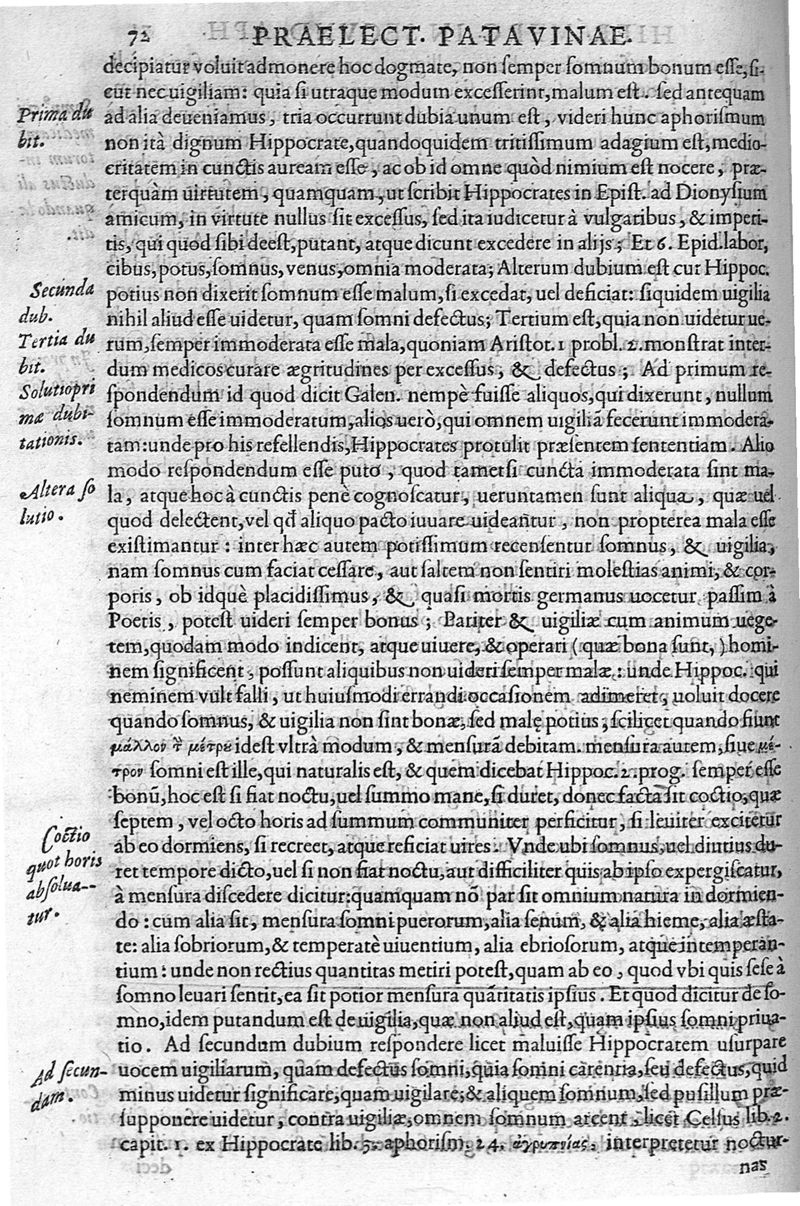 72 PRAELECT. PATAVINAE.
decipiatur voluit admonere hoc dogmate, non ſemper ſomnum bonum eſſe, ſi-
cut nec uigiliam: quia ſi utraque modum exceſſerint, malum eſt. ſed antequam
Prima du
bit.
ad alia deueniamus, tria occurrunt dubia unum eſt, videri hunc aphoriſmum
non ità dignum Hippocrate, quandoquidem tritiſſimum adagium eſt, medio-
critatem in cunctis auream eſſe, ac ob id omne quòd nimium eſt nocere, præ-
terquàm uirtutem, quamquam, ut ſcribit Hippocrates in Epiſt. ad Dionyſium
amicum, in virtute nullus ſit exceſſus, ſed ita iudicetur à vulgaribus, & imperi-
tis, qui quod ſibi deeſt, putant, atque dicunt excedere in alijs; Et 6. Epid. labor,
cibus, potus, ſomnus, venus, omnia moderata; Alterum dubium eſt cur Hippoc.
Secunda
dub.
potius non dixerit ſomnum eſſe malum, ſi excedat, uel deficiat: ſiquidem uigilia
nihil aliud eſſe uidetur, quam ſomni defectus; Tertium eſt, quia non uidetur ue-
Tertia du
bit.
rum, ſemper immoderata eſſe mala, quoniam Ariſtot. 1 probl. 2. monſtrat inter-
dum medicos curare ægritudines per exceſſus, & defectus; Ad primum re-
Solutio pri
mæ dubi-
tationis.
ſpondendum id quod dicit Galen. nempè fuiſſe aliquos, qui dixerunt, nullum
ſomnum eſſe immoderatum, aliqs uerò, qui omnem uigiliā fecerunt immodera-
tam: unde pro his refellendis, Hippocrates protulit præſentem ſententiam. Alio
modo reſpondendum eſſe puto, quod tametſi cuncta immoderata ſint ma-
Altera ſo
lutio.
la, atque hoc à cunctis penè cognoſcatur, ueruntamen ſunt aliqua, quæ uel
quod delectent, vel qđ aliquo pacto iuuare uideantur, non propterea mala eſſe
exiſtimantur: inter hæc autem potiſſimum recenſentur ſomnus, & uigilia,
nam ſomnus cum faciat ceſſare, aut ſaltem non ſentiri moleſtias animi, & cor-
poris, ob idquè placidiſſimus, & quaſi mortis germanus uocetur paſſim à
Poetis, poteſt uideri ſemper bonus; Pariter & uigiliæ cum animum uege-
tem, quodam modo indicent, atque uiuere, & operari (quæ bona ſunt,) homi-
nem ſignificent, poſſunt aliquibus non uideri ſemper malæ: unde Hippoc. qui
neminem vult falli, ut huiuſmodi errandi occaſionem adimeret, uoluit docere
quando ſomnus, & uigilia non ſint bonæ, ſed malę potius, ſcilicet quando fiunt
μᾶλλον τοῦ μέτρου ideſt vltrà modum, & menſurā debitam. menſura autem, ſiue μέ-
τρον ſomni eſt ille, qui naturalis eſt, & quem dicebat Hippoc. 2. prog. ſemper eſſe
bonū, hoc eſt ſi fiat noctu, uel ſummo mane, ſi duret, donec facta ſit coctio, quæ
Coctio
quot horis
abſolua-
tur.
ſeptem, vel octo horis ad ſummum communiter perficitur, ſi leuiter excitetur
ab eo dormiens, ſi recreet, atque reficiat uires. Vnde ubi ſomnus, uel diutius du-
ret tempore dicto, uel ſi non fiat noctu, aut difficiliter quis ab ipſo expergiſcatur,
à menſura diſcedere dicitur: quamquam nō par ſit omnium natura in dormien-
do: cum alia ſit, menſura ſomni puerorum, alia ſenum, & alia hieme, alia æſta-
te: alia ſobriorum, & temperatè uiuentium, alia ebrioſorum, atque intemperan-
tium: unde non rectius quantitas metiri poteſt, quam ab eo, quod vbi quis ſeſe à
ſomno leuari ſentit, ea ſit potior menſura quātitatis ipſius. Et quod dicitur de ſo-
mno, idem putandum eſt de uigilia, quæ non aliud eſt, quam ipſius ſomni priua-
tio. Ad ſecundum dubium reſpondere licet maluiſſe Hippocratem uſurpare
Ad ſecun-
dam.
uocem uigiliarum, quam defectus ſomni, quia ſomni carentia, ſeu defectus, quid
minus uidetur ſignificare, quam uigilare; & aliquem ſomnum, ſed puſillum præ-
ſupponere uidetur, contra uigiliæ, omnem ſomnum arcent, licet Celſus lib. 2.
capit. 1. ex Hippocrate lib. 3. aphoriſm. 24. ἀγρυπνίας, interpretetur noctur-
nas